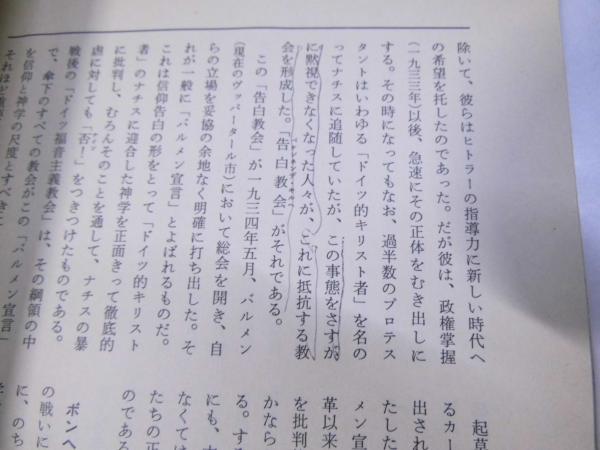 除いて、彼らはヒトラーの指導力に新しい時代へ
の希望を托したのであった。だが彼は、政権掌握
(一九三三年)以後、急速にその正体をむき出しに
する。その時になってもなお、過半数のプロテス
タントはいわゆる「ドイツ的キリスト者」を名の
ってナチスに追随していたが、この事態をさすが
に黙視できなくなった人々が、これに抵抗する教
会を形成した。「告白教会」がそれである。
この「告白教会」が一九三四年五月、バルメン
(現在のヴッパータール市)において総会を開き、自
らの立場を妥協の余地なく明確に打ち出した。そ
れが一般に「バルメン宣言」とよばれるものだ。
これは信仰告白の形をとって「ドイツ的キリスト
者」のナチスに迎合した神学を正面きって徹底的
に批判し、むろんそのことを通して、ナチスの暴
虐に対しても「否!」をつきつけたものである。
戦後の「ドイツ福音主義教会」は、その綱領の中
で、傘下のすべての教会がこの「バルメン宣言」
を信仰と神学の尺度とすべきこ
起草
るカー
出され
たした
メン宣
革以来
を批判
かなら
る。する
にも、
なくては
たちの正
のである
ボンヘ
の戦いに
に、のち